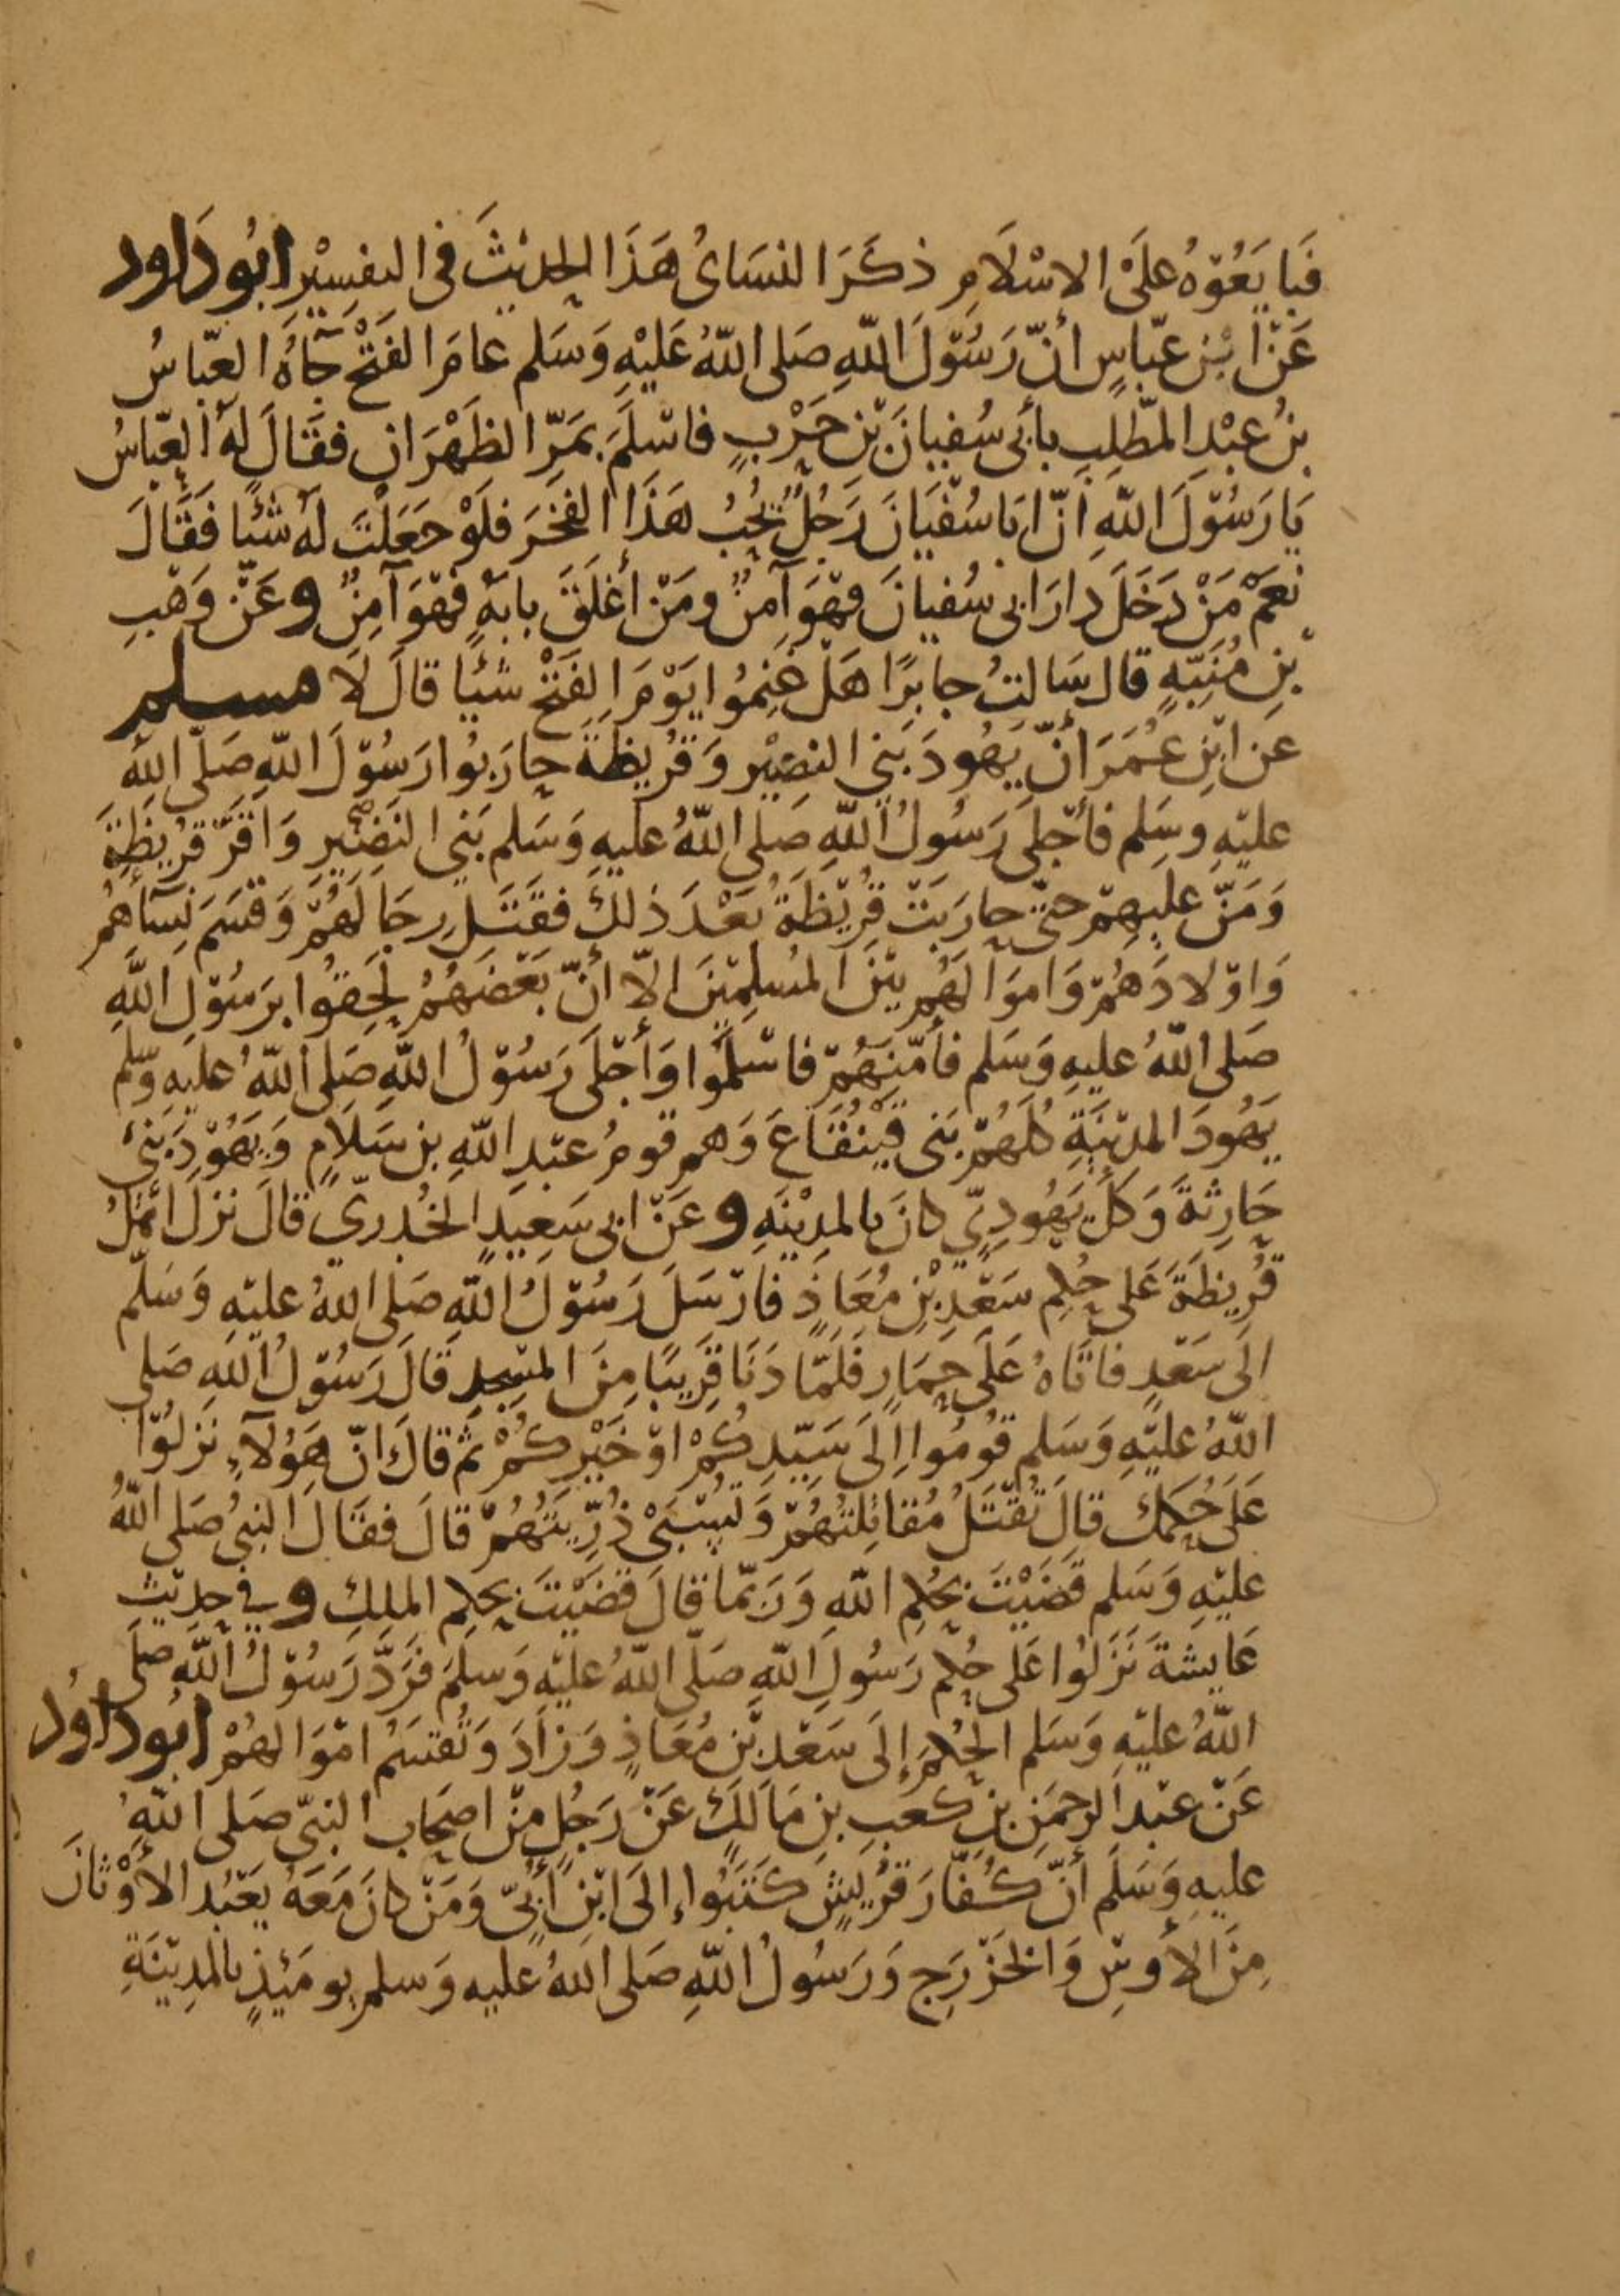 فَبَايَعُوْهُ عَلَى الاسْلَامِ ذكَرَ النسَائُ هَذَا الحديْثَ في التفسِيْرِ ابُو دَاود
عَنْ ابْنِ عبّاسٍ أنّ رَسُوْلَ اللّهِ صَلى اللّهُ عَليْهِ وَسَلم عامَ الفَتْح جَآهُ العبّاسُ
بنُ عبْدِ المطّلِبِ بأبى سُفيانَ بْن حَرْبٍ فاسْلَمَ بمَرِّ الظَهْرَان فقَالَ لهُ العبّاسُ
يَا رَسُوْلَ اللّهِ انّ ابَا سُفْيَانَ رَجُلٌ يُحِبُ هَذَا الفخرَ فلَوْ جَعَلْتَ لهُ شَيْئًا فقَالَ
نعَمْ مَنْ دَخَلَ دارَ ابى سُفيانَ فهْوَ آمنٌ ومَنْ أغلَقَ بابَهُ فهْوَ آمِنٌ وعَنْ وَهْبِ
بْنِ مُنَبِّهٍ قال سَالتُ جابرًا هَلْ غَنِمُوا يَوْمَ الفَتْحْ شيًا قالَ لَا مسلم
عَنِ ابْنِ عُمَرَ أنّ يَهُودَ بَنِي النضِيْرِ وَقُرَيظَةَ حارَبُوا رَسُوْلَ اللّهِ صَلّى اللّهُ
عليْهِ وسَلم فأجْلى رَسُولُ اللّهِ صَلى اللّهُ عليهِ وَسَلم بَنِي النَضِيْرِ وَاقَرَّ قُرَيظَةَ
وَمَنّ عليهِمْ حتّى حارَبَتْ قُرَيْظَةُ بَعْدَ ذلكَ فقَتَلَ رجَالَهُمْ وَقسَمَ نِسَآهُمُ
وَاوْلادَهُمْ وَاموَالَهُم بَيْنَ المُسلِمِيْنَ الّا أنّ بَعْضَهُمْ لَحِقُوا برَسُوْلِ اللّهِ
صَلى اللّهُ عليهِ وَسَلم فأمّنَهُمْ فاسْلَمُوا وَأجْلَى رَسُوْلُ اللّهِ صَلى اللّهُ عليهِ وسّلم
يَهُودَ المدِيْنَةِ كُلهُمْ بَنى قَيْنُقَاعَ وَهم قومُ عبْدِ اللّهِ بن سَلَامٍ وَيَهُوْدَ بَنى
حَارِثَةَ وَكلَّ يَهُودِيّ كانَ بالمدِيْنَةِ وعَنْ ابى سَعِيدٍ الخُدرِيّ قالَ نزلَ أهْلُ
قُرَيظَةَ عَلى حُكِم سَعْدِ بْنِ مُعَاذٍ فارْسَلَ رَسُوْلُ اللّهِ صَلى اللّهُ عليْهِ وَسَلّم
الَى سَعْدٍ فاتَاهُ عَلَى حِمَارٍ فَلَمّا دَنَا قَرِيبًا مِنَ المسْجدِ قالَ رَسُوْلُ اللّهِ صَلى
اللّهُ عليْهِ وَسَلم قُومُوا إلَى سَيّدِكُمْ اوْ خَيْرِكُمْ ثم قالَ انّ هَؤُلآءِ نَزلُوْا
عَلَى حُكمِكَ قالَ تُقْتَلُ مُقاتِلتُهُمْ وَتُسْبَىْ ذُرِّيَتُهُمْ قالَ فقَالَ النبىُ صَلى اللّهُ
عليْهِ وَسَلم قَضَيْتَ بحُكمِ اللّهِ وَربّمَا قالَ قضَيْتَ بحكمِ الملِكِ وفي حديْثِ
عَايشَةَ نَزَلُوا عَلى حُكم رَسُولِ اللّهِ صَلّى اللّهُ عليْهِ وَسلمَ فرَدَّ رَسُوْلُ اللّهِ صلَى
اللّهُ عليْهِ وَسَلم الحُكمَ إلَى سَعْدِ بْنِ مُعَاذٍ وَزادَ وَتُقسَمُ امْوَالهُمْ ابُو داوُد
عَنْ عبْد الرحمَنِ بنِ كعَبِ بنِ مَالكٍ عَنْ رَجُلٍ مِنْ اصحَاب النبىّ صَلى اللّهُ
عليهِ وَسَلَم أنّ كُفّارَ قُرَيشٍ كتَبُوا إلَى ابْنِ أبىّ وَمَنْ كانَ مَعَهُ يَعْبُد الأوْثانَ
مِنَ الأَوسِ وَالخَزْرَجِ وَرَسُولُ اللّهِ صَلى اللّهُ عليه وَسلم يومَئِذٍ بالمدِيْنَةِ